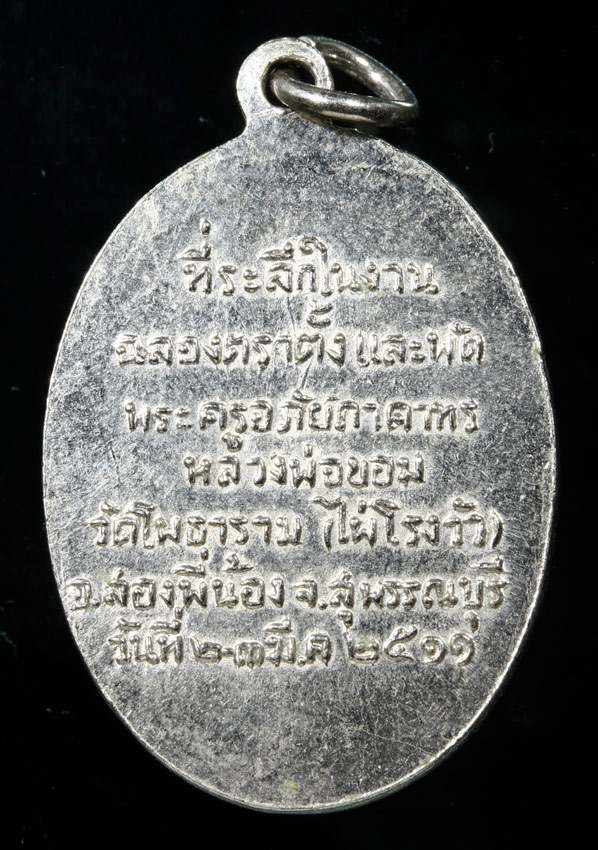 ที่ระลึกในงาน
ฉลองตราตั้งและพัด
พระครูอภัยภาดาทร
หลวงพ่อขอม
วัดโพธาราม (ไผ่โรงวัว)
อ.สองพี่น้อง จ.สุพรรณบุรี
วันที่ ๒-๓ มี.ค ๒๕๑๑